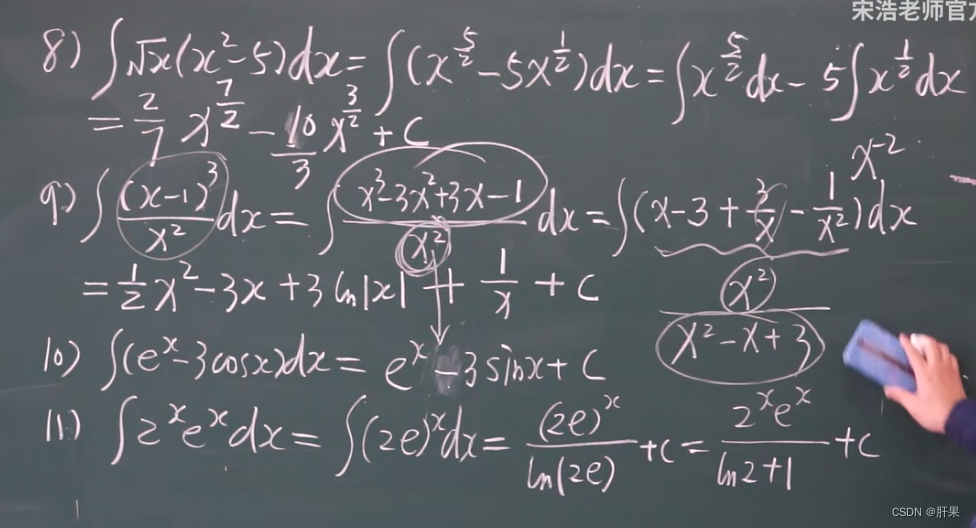 宋浩老师官方
8) ∫√x(x²-5)dx = ∫(x^{5/2} - 5x^{1/2})dx = ∫x^{5/2}dx - 5∫x^{1/2}dx
= 2/7 x^{7/2} - 10/3 x^{3/2} + C
x^{-2}
9) ∫(x-1)³/x² dx = ∫(x³-3x²+3x-1)/x² dx = ∫(x-3+3/x-1/x²)dx
= 1/2 x² - 3x + 3ln|x| + 1/x + C
x²/(x²-x+3)
10) ∫(e^x-3cosx)dx = e^x - 3sinx + C
11) ∫2^x e^x dx = ∫(2e)^x dx = (2e)^x/ln(2e) + C = 2^x e^x/(ln2+1) + C
CSDN @肝果